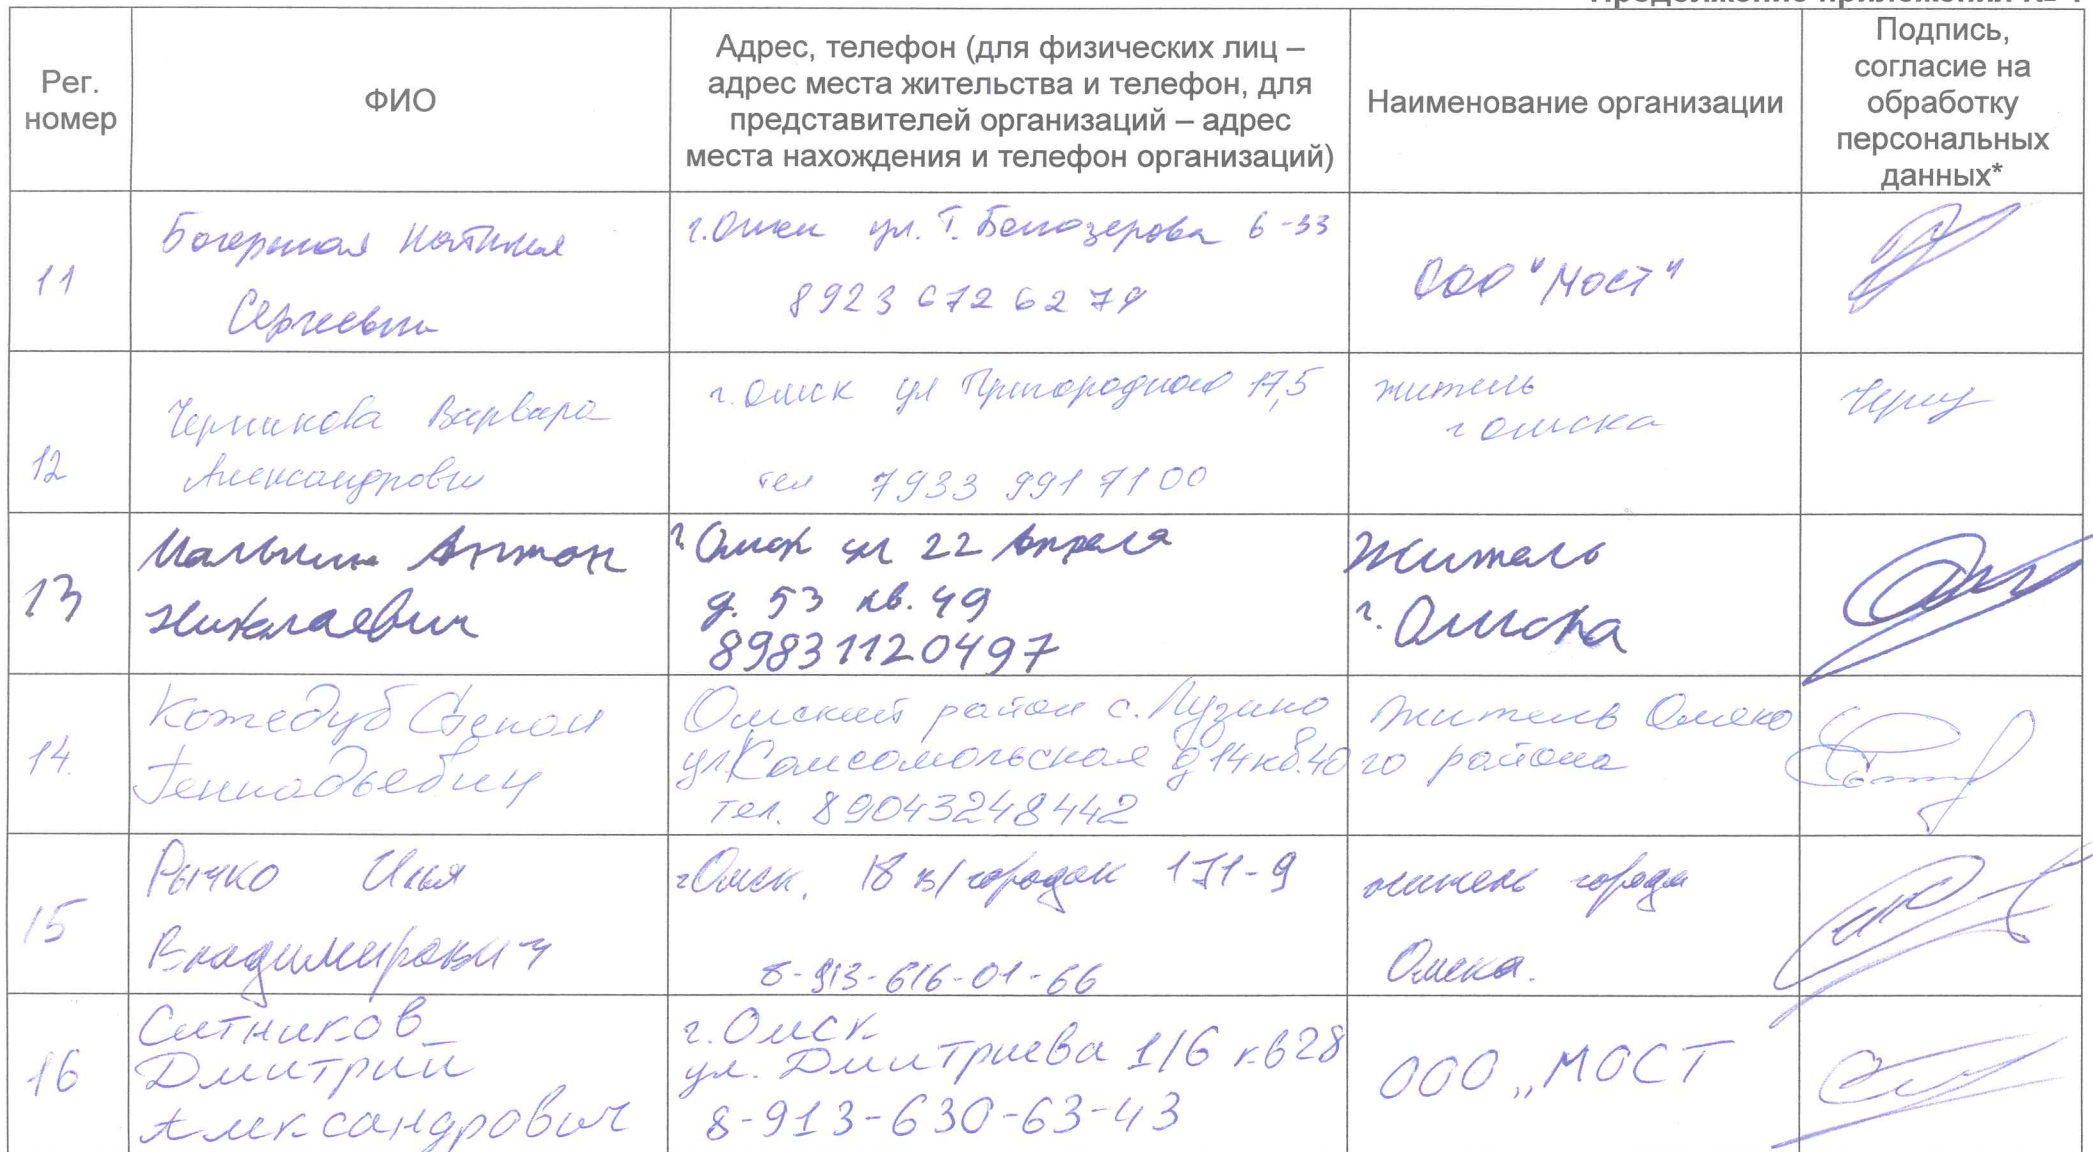 Продолжение приложения № 1
Рег.
номер
ФИО
Адрес, телефон (для физических лиц –
адрес места жительства и телефон, для
представителей организаций – адрес
места нахождения и телефон организаций)
Наименование организации
Подпись,
согласие на
обработку
персональных
данных*
11
Наталья
Сергеевна
г.Омск ул. Т. Белозерова 6-33
8923 672 62 79
ООО "Мост"
12
Черникова Варвара
Александровна
г. Омск ул Пригородная
тел 7933 991 7100
житель
г Омска
13
Антон
Николаевич
г. Омск ул 22 Апреля
д. 53 кв. 49
89831120497
Житель
г. Омска
14.
Кожедуб Степан
Геннадьевич
Омский район с. Лузино
ул. Комсомольская д 14 кв. 40
тел. 89043248442
Житель Омско
го района
15
Рычко Илья
Владимирович
г Омск. 18 в/городок 171-9
8-913-616-01-66
житель города
Омска.
16
Ситников
Дмитрий
Александрович
г. Омск
ул. Дмитриева 1/6 кв 28
8-913-630-63-43
ООО „МОСТ